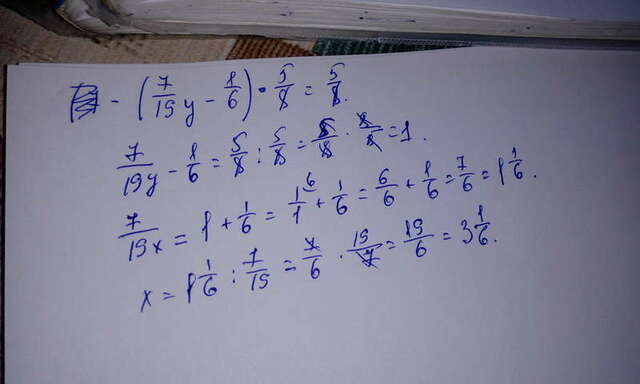 - (7/19 y - 1/6) · 5/8 = 5/8.
7/19y - 1/6 = 5/8 : 5/8 = 5/8 · 8/8 = 1.
7/19x = 1 + 1/6 = 1/1^6 + 1/6 = 6/6 + 1/6 = 7/6 = 1 1/6.
x = 1 1/6 : 7/19 = 7/6 · 19/7 = 19/6 = 3 1/6.